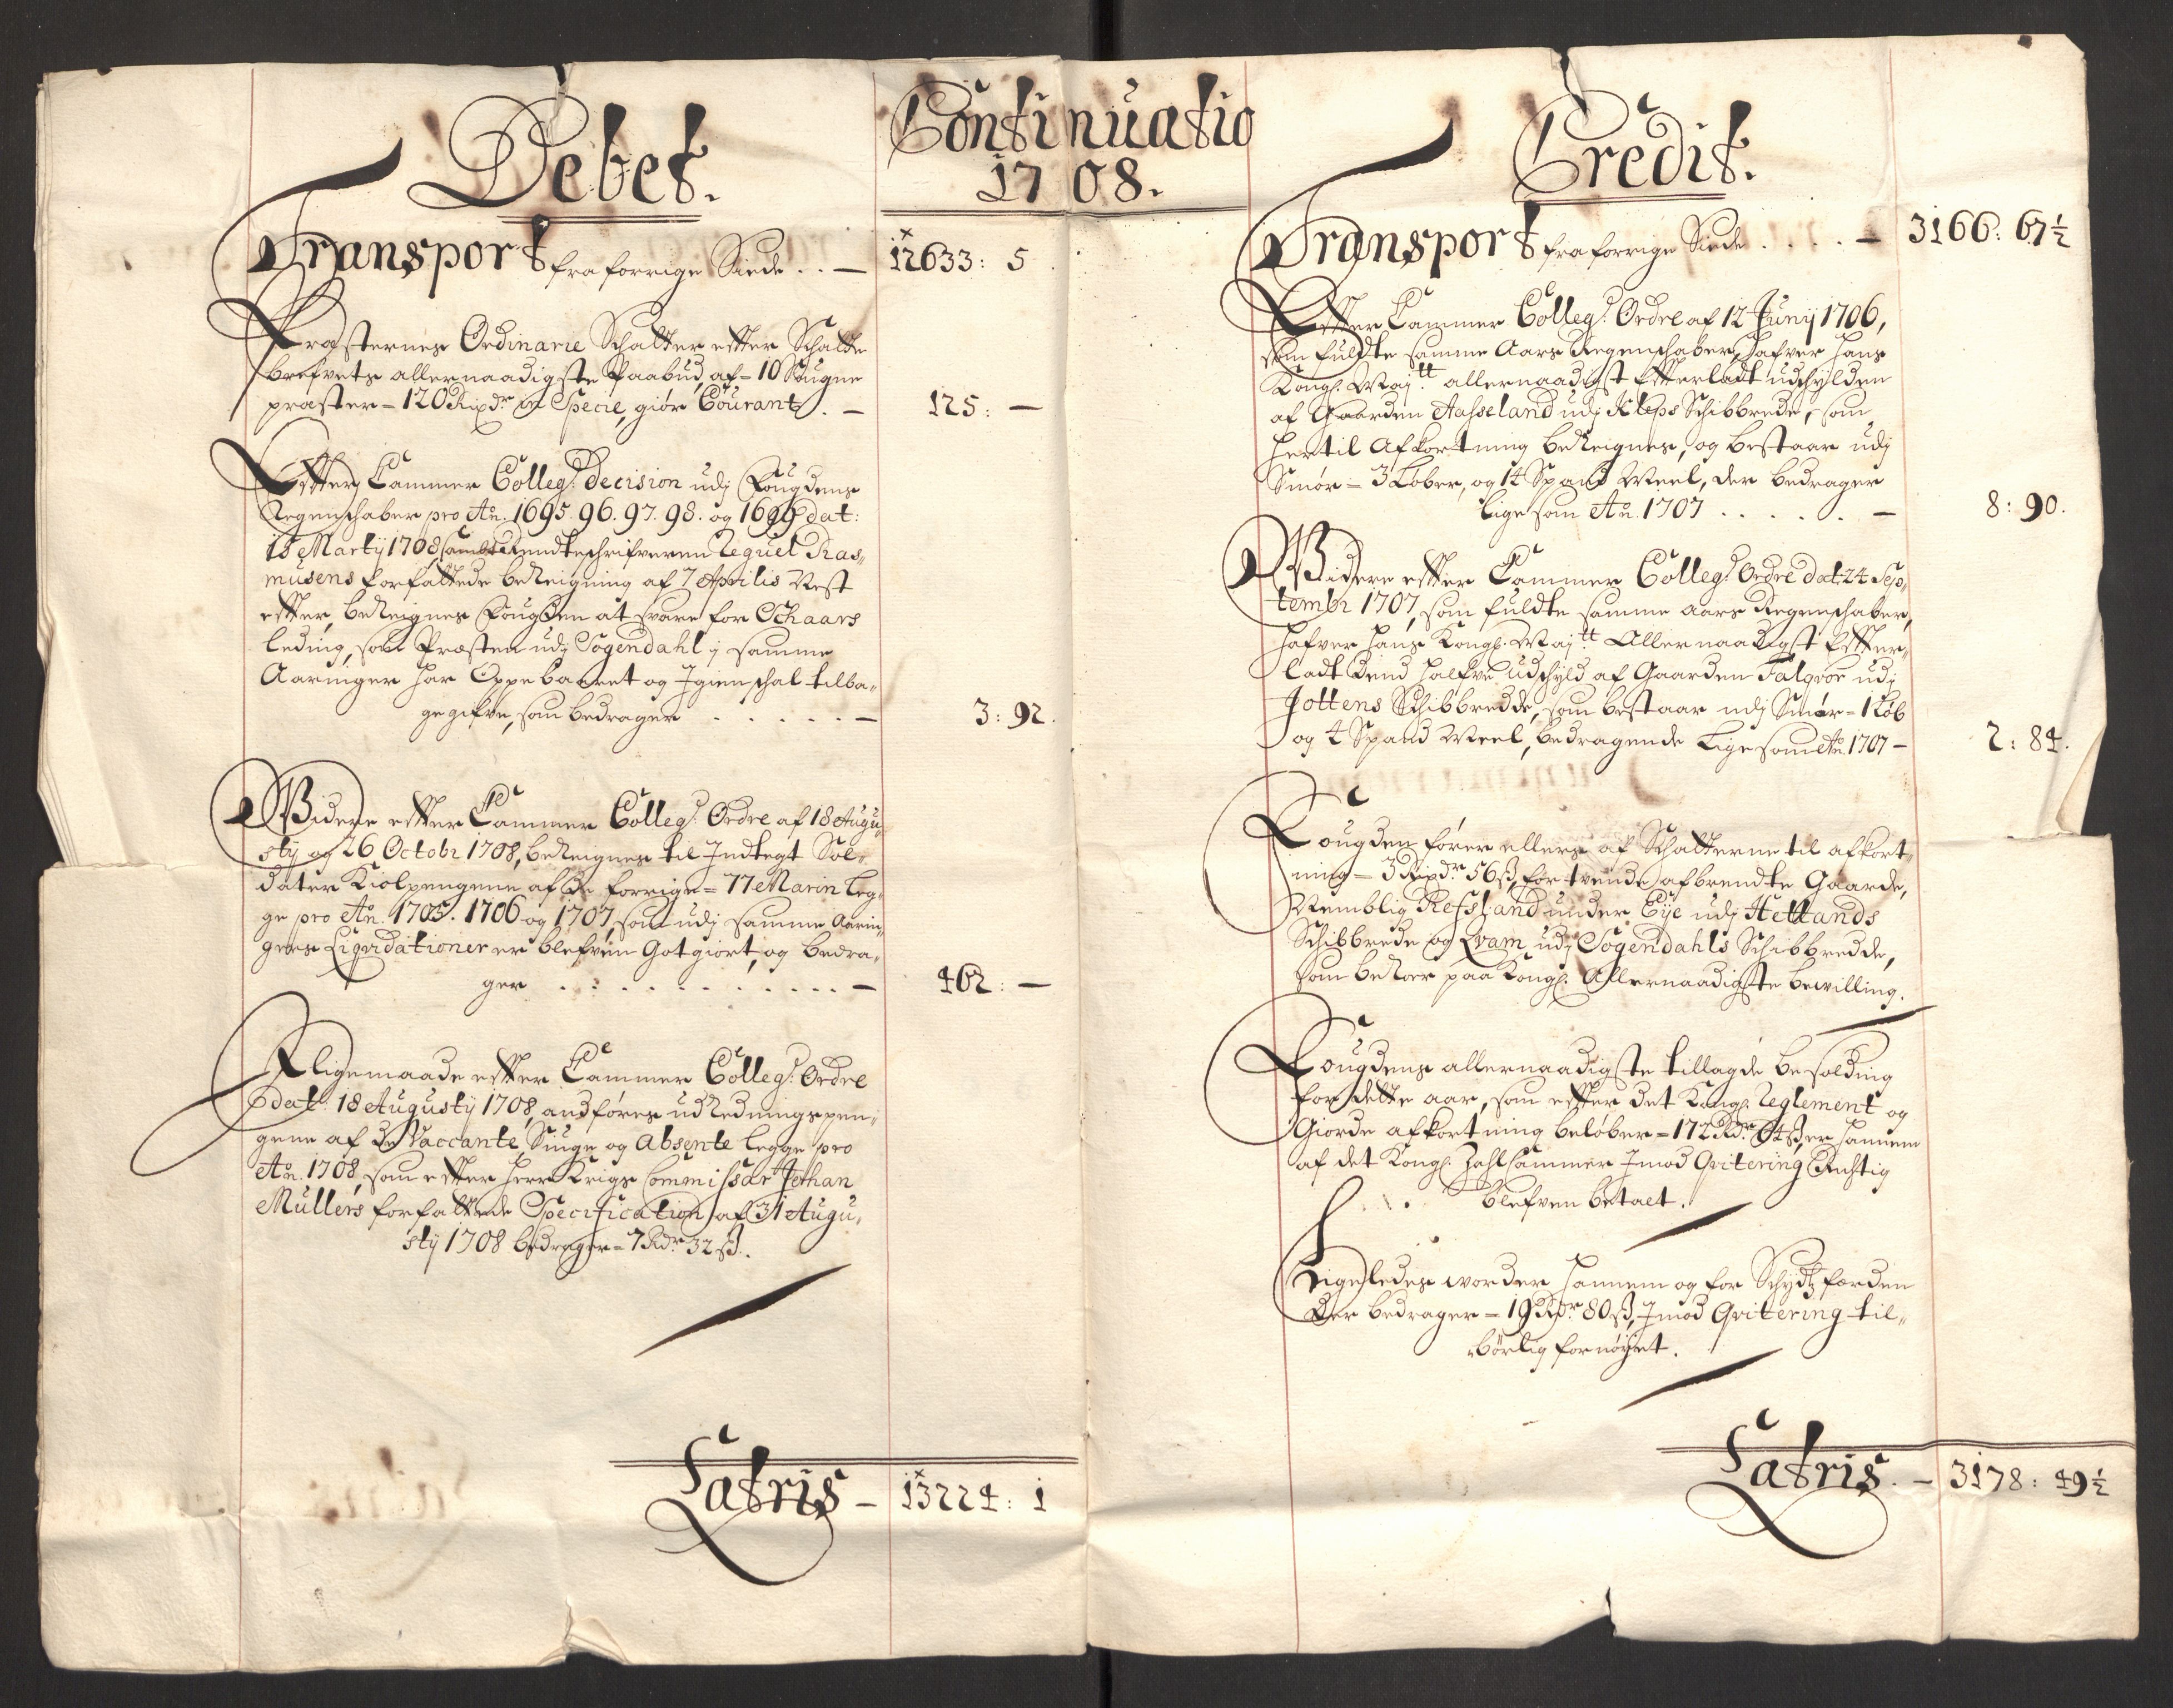 Continuatio
1708.
Debet.
Transport fra forrige Siede . . — 12633: 5
Præsternes Ordinarie Schatter effter Schatte
brefvets allernaadigste Paabud af = 10 Sougne
præster = 120 Rixdr in Specie, giör Courant . — 125: —
Effter Cammer Colleg: Decision udj Fougdens
Regenschaber pro Ao. 1695. 96. 97. 98. og 1699 dat:
Marty 1708, samt Rendteschrifveren Requel Ras„
musens forfattede bereigning af 7 Aprilis Nest
effter, bereignes Fougden at svare for Schaars
leding, som Præsten udj Sogendahl j samme
Aaringer har Oppebaaret og Igienschal tilba„
gegifve, som bedrager . . . . . — 3: 92.
Widere effter Cammer Colleg: Ordre af 18 Augu„
sty og 26 Octobr 1708, bereignes til Indtegt Sol„
dater Kiolpengene af de forrige = 77 Marin Leg„
ge pro Ao. 1705. 1706 og 1707, som udj samme Aarin„
gers Liqvidationer er blefven Gotgiort, og bedra„
ger . . . . . . . . . . — 462: —
Ligemaade effter Cammer Colleg: Ordre
dat: 18 Augusty 1708, andföres udredningspen„
gene af de Vaccante, Siuge og Absente Legge pro
Ao. 1708, som effter Herr Krigs Commissar Johan
Müllers forfattede Specification af 31 Augu„
sty 1708 bedrager = 7 Rdr 32 ß.
Latris — 13224: 1
Credit.
Transport fra forrige Siede . . . . — 3166: 67½
Effter Cammer Colleg: Ordre af 12 Juny 1706,
som fuldte samme Aars Regenschaber, hafver Hans
Kongl: Maj:tt allernaadigst Efterladt udschylden
af Gaarden Aasseland udj Kleps Schibbrede, som
hertil Afkortning bereignes, og bestaar udj
Smör = 3 Löber, og 14 Spand Meel, der bedrager
lige som Ao. 1707 . . . . . . — 8: 90.
Widere effter Cammer Colleg: Ordre dat: 24 Sep„
tembr 1707, som fuldte samme aars Regenschaber,
hafver Hans Kongl: Maj:tt Allernaadigst Effter„
ladt dend halfve udschyld af Gaarden Falgröe udj
Jottens Schibbredde, som bestaar udj Smör = 1 Löb
og 4 Spand Meel, bedragende lige som Ao. 1707 — 2: 84.
Fougden förer ellers af Schatterne til afkort„
ning = 3 Rixdr 56 ß, for tvende afbrendte Gaarde,
Nemblig Refsland under Eye udj Hetlands
Schibbrede og Qvam udj Sogendahls Schibbredde,
som beroer paa Kongl: Allernaadigste bewilling.
Fougdens allernaadigste tillagde besolding
for dette aar, som effter det Kongl: Reglement og
Giorde afkortning belöber = 172 Rdr 64 ß, er hannem
af det Kongl: Zahlkammer Imod Qvitering Rigtig
blefven betalt.
Ligeledes worder hannem og for Schydtzfærden
der bedrager = 19 Rdr 80 ß, Imod Qvitering til„
börlig fornöyet.
Latris . — 3178: 49½